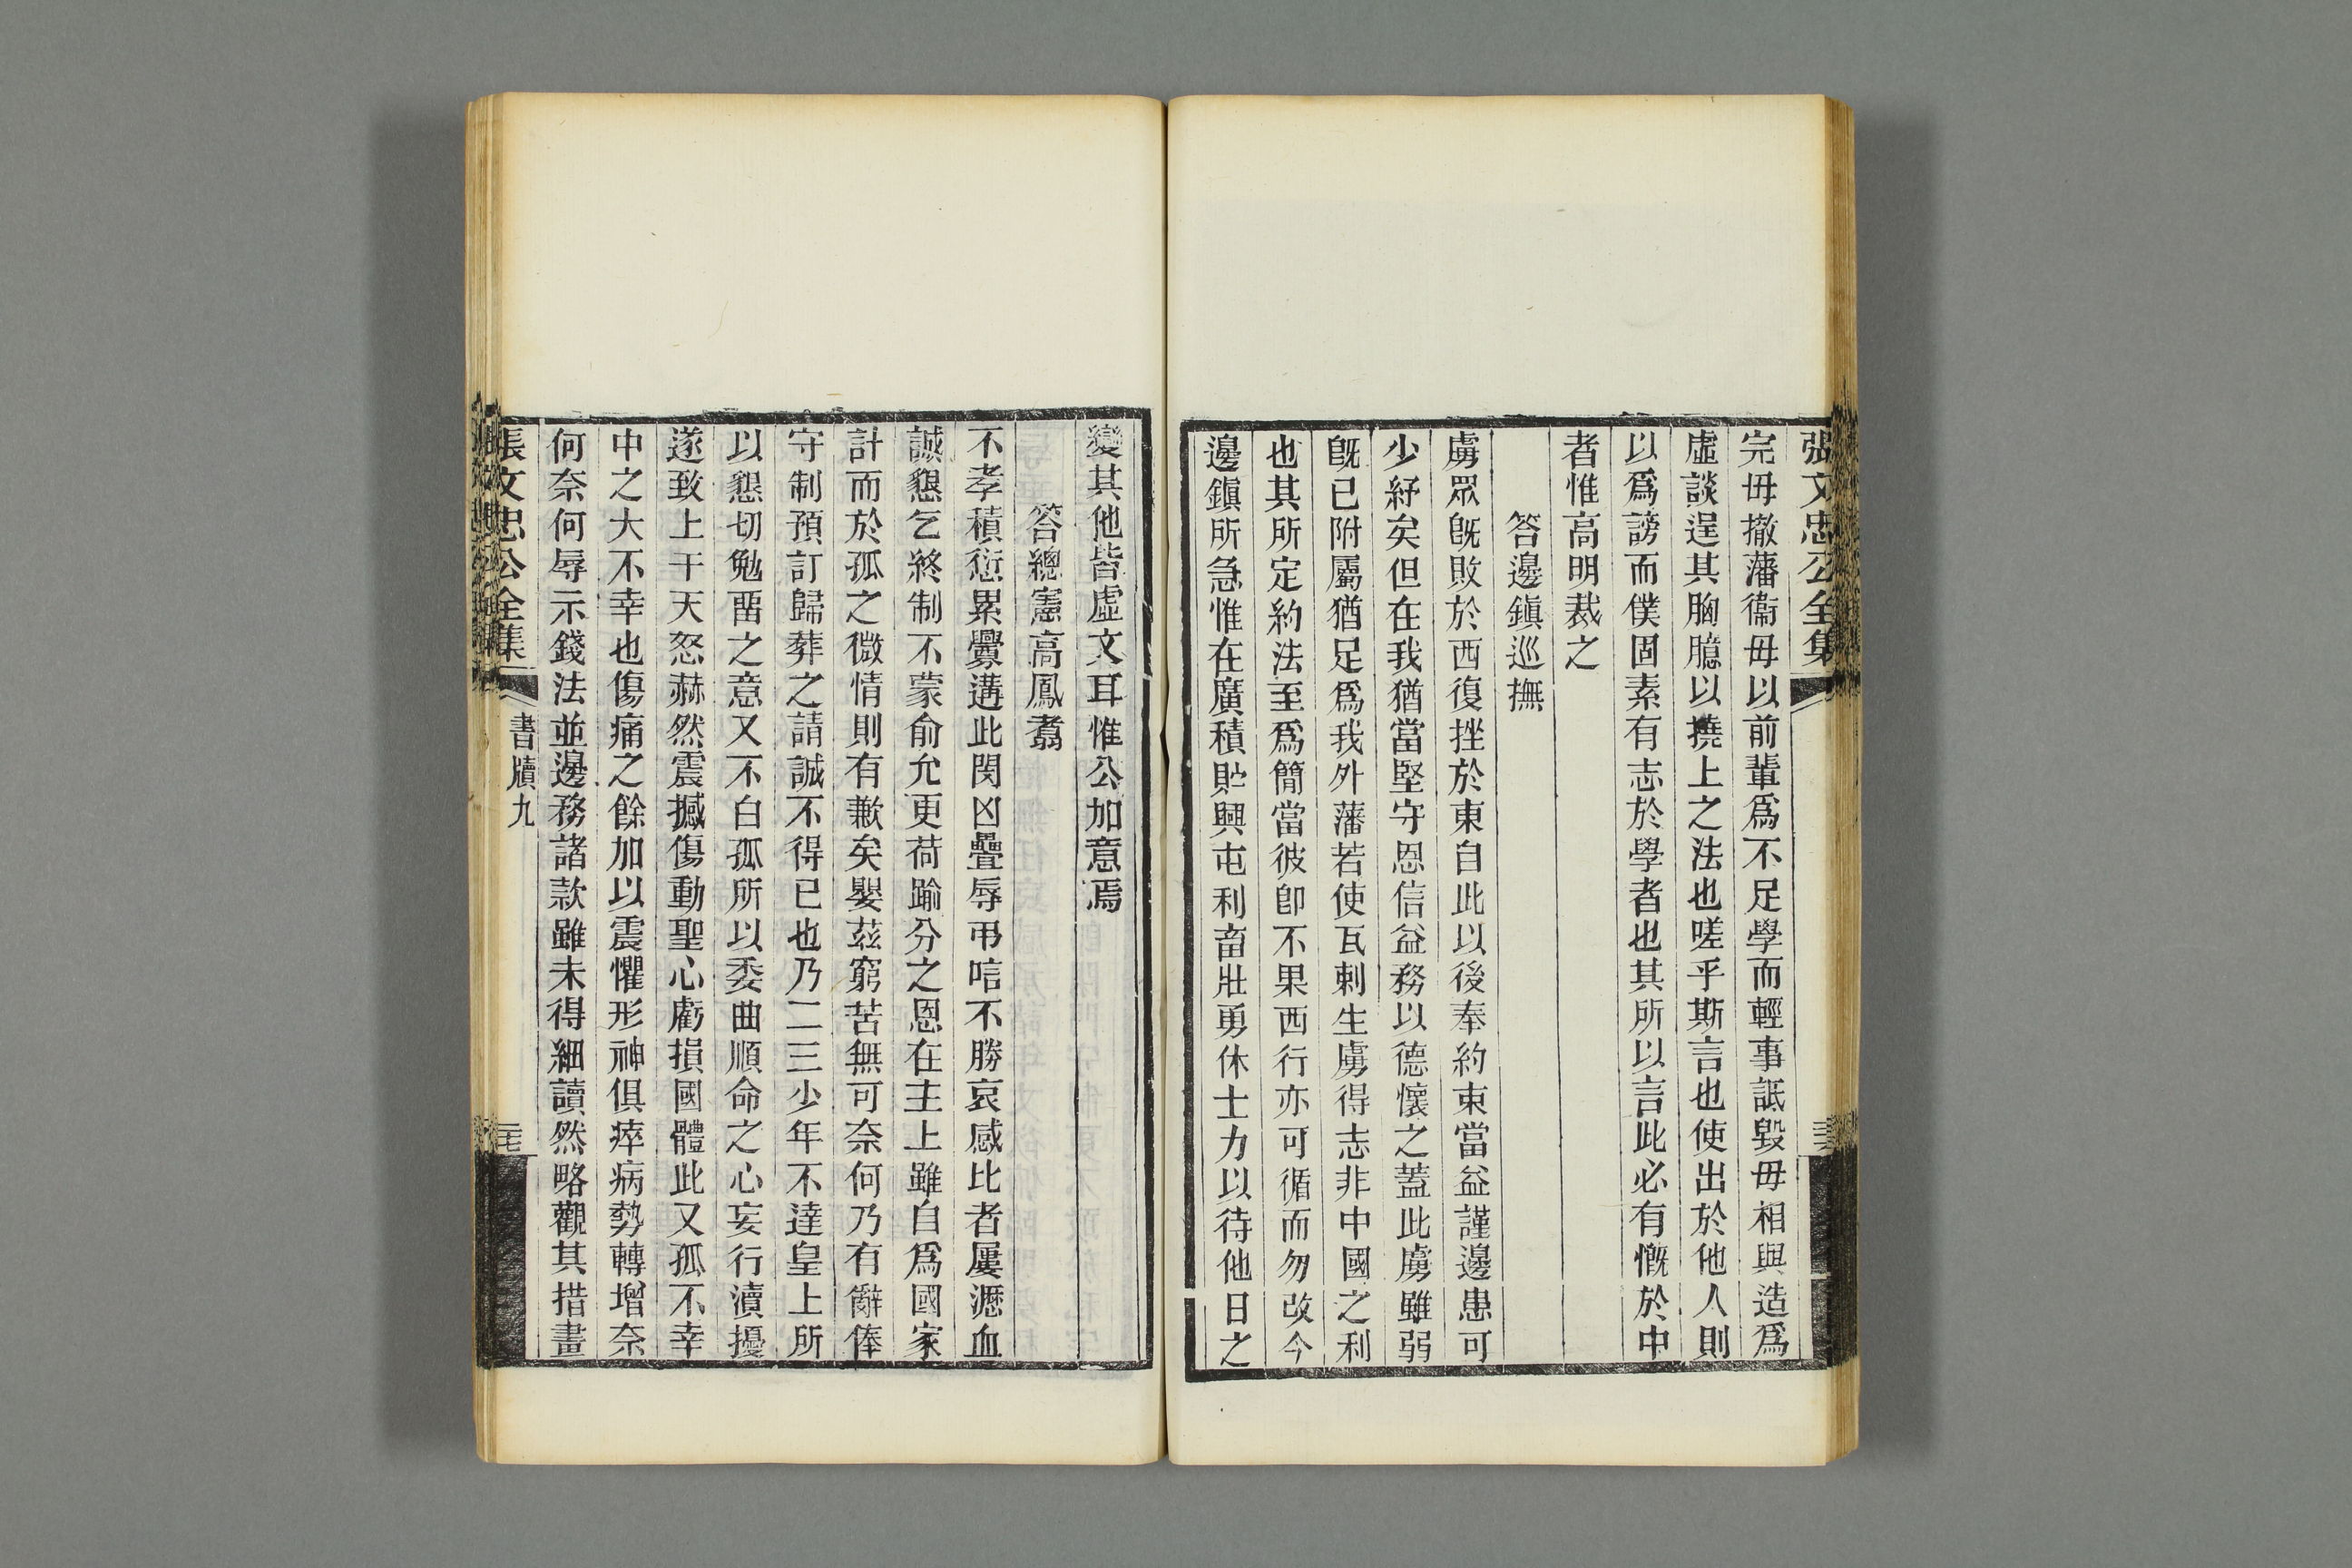 張文忠公全集
完毋撤藩衞毋以前輩爲不足學而輕事詆毀毋相與造爲
虛談逞其胸臆以撓上之法也嗟乎斯言也使出於他人則
以爲謗而僕固素有志於學者也其所以言此必有慨於中
者惟高明裁之
答邊鎭巡撫
虜眾旣敗於西復挫於東自此以後奉約束當益謹邊患可
少紓矣但在我猶當堅守恩信益務以德懷之蓋此虜雖弱
旣已附屬猶足爲我外藩若使瓦剌生虜得志非中國之利
也其所定約法至爲簡當彼卽不果西行亦可循而勿改今
邊鎭所急惟在廣積貯興屯利畜壯勇休士力以待他日之
變其他皆虛文耳惟公加意焉
答總憲高鳳翥
不孝積愆累釁遘此閔凶疊辱弔唁不勝哀感比者屢瀝血
誠懇乞終制不蒙俞允更荷踰分之恩在主上雖自爲國家
計而於孤之微情則有歉矣嬰茲窮苦無可奈何乃有辭俸
守制預訂歸葬之請誠不得已也乃二三少年不達皇上所
以懇切勉畱之意又不白孤所以委曲順命之心妄行瀆擾
遂致上干天怒赫然震撼傷動聖心虧損國體此又孤不幸
中之大不幸也傷痛之餘加以震懼形神俱瘁病勢轉增奈
何奈何辱示錢法並邊務諸款雖未得細讀然略觀其措畫
張文忠公全集 書牘九